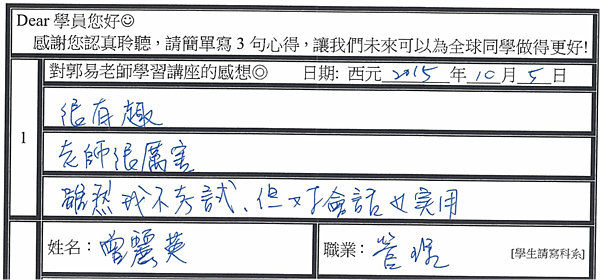 Dear 學員您好☺
感謝您認真聆聽，請簡單寫 3 句心得，讓我們未來可以為全球同學做得更好!
對郭易老師學習講座的感想◎ 日期: 西元 2015 年 10 月 5 日
1
很有趣
老師很厲害
雖然我不考試、但对會話也实用
姓名：曾麗英 職業：管理 [學生請寫科系]